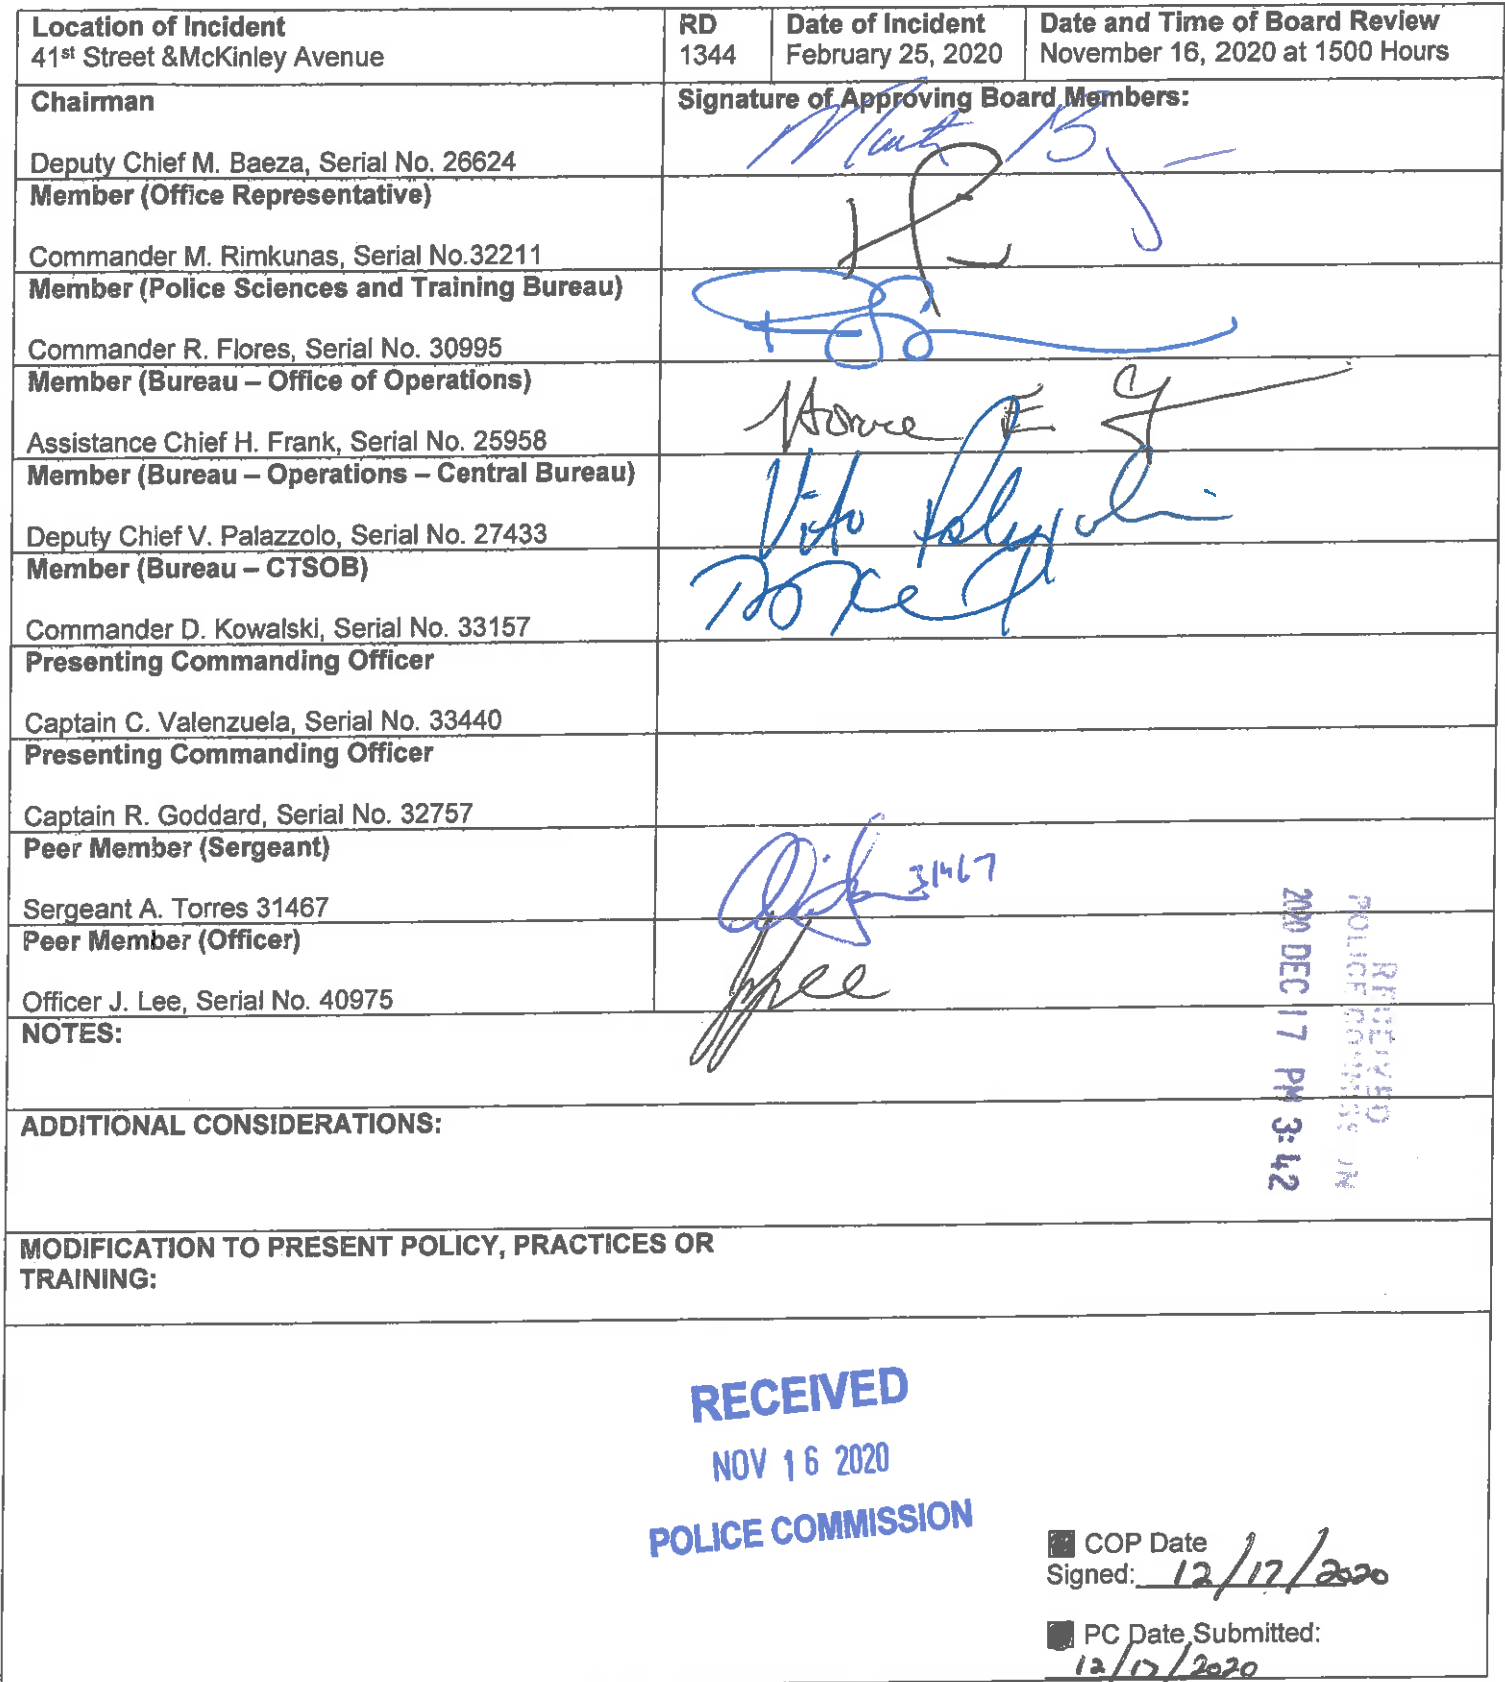 Location of Incident
41st Street &McKinley Avenue
RD
1344
Date of Incident
February 25, 2020
Date and Time of Board Review
November 16, 2020 at 1500 Hours
Chairman
Deputy Chief M. Baeza, Serial No. 26624
Signature of Approving Board Members:
Member (Office Representative)
Commander M. Rimkunas, Serial No.32211
Member (Police Sciences and Training Bureau)
Commander R. Flores, Serial No. 30995
Member (Bureau – Office of Operations)
Assistance Chief H. Frank, Serial No. 25958
Member (Bureau – Operations – Central Bureau)
Deputy Chief V. Palazzolo, Serial No. 27433
Vito Palazzolo
Member (Bureau – CTSOB)
Commander D. Kowalski, Serial No. 33157
Presenting Commanding Officer
Captain C. Valenzuela, Serial No. 33440
Presenting Commanding Officer
Captain R. Goddard, Serial No. 32757
Peer Member (Sergeant)
Sergeant A. Torres 31467
31467
Peer Member (Officer)
Officer J. Lee, Serial No. 40975
NOTES:
RECEIVED
POLICE
2020 DEC 17 PM 3:42
ADDITIONAL CONSIDERATIONS:
MODIFICATION TO PRESENT POLICY, PRACTICES OR
TRAINING:
RECEIVED
NOV 16 2020
POLICE COMMISSION
COP Date
Signed: 12/17/2020
PC Date Submitted:
12/17/2020